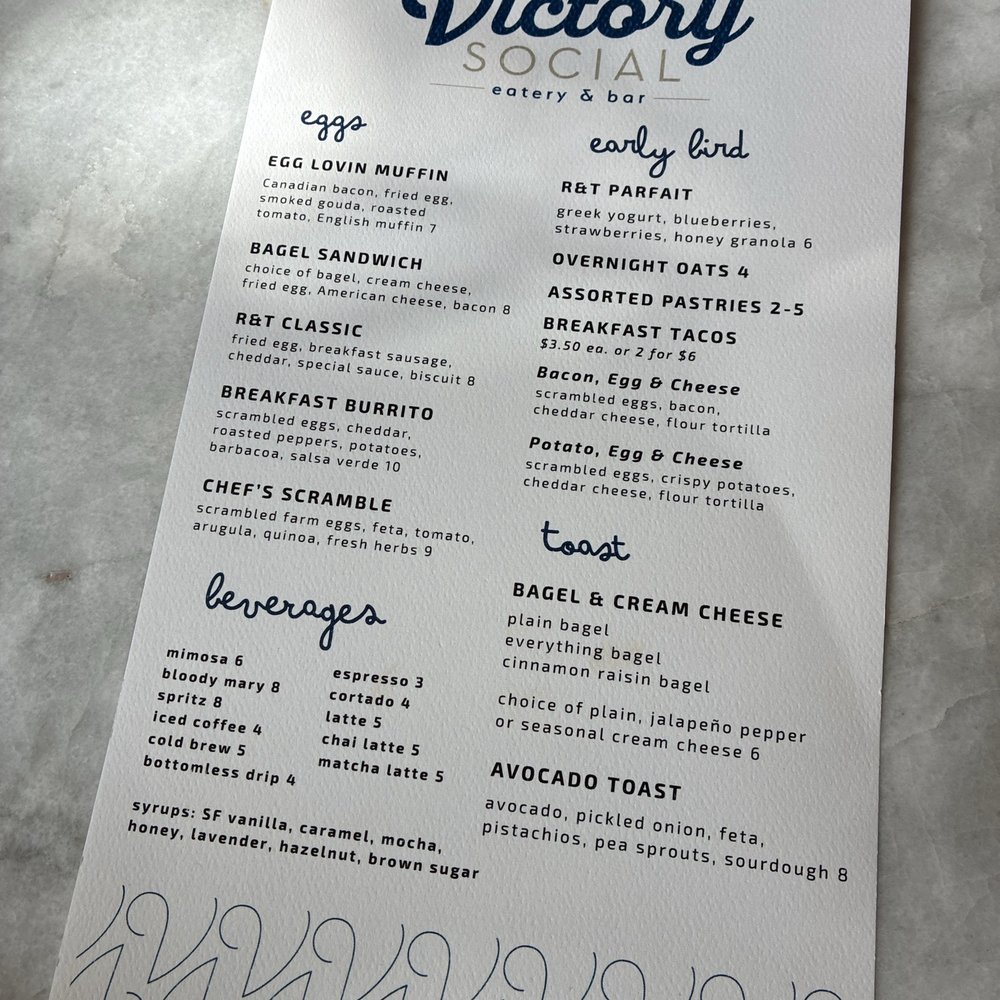 Victory
SOCIAL
eatery & bar
eggs
EGG LOVIN MUFFIN
Canadian bacon, fried egg,
smoked gouda, roasted
tomato, English muffin 7
BAGEL SANDWICH
choice of bagel, cream cheese,
fried egg, American cheese, bacon 8
R&T CLASSIC
fried egg, breakfast sausage,
cheddar, special sauce, biscuit 8
BREAKFAST BURRITO
scrambled eggs, cheddar,
roasted peppers, potatoes,
barbacoa, salsa verde 10
CHEF'S SCRAMBLE
scrambled farm eggs, feta, tomato,
arugula, quinoa, fresh herbs 9
beverages
mimosa 6
bloody mary 8
spritz 8
iced coffee 4
cold brew 5
bottomless drip 4
espresso 3
cortado 4
latte 5
chai latte 5
matcha latte 5
syrups: SF vanilla, caramel, mocha,
honey, lavender, hazelnut, brown sugar
early bird
R&T PARFAIT
greek yogurt, blueberries,
strawberries, honey granola 6
OVERNIGHT OATS 4
ASSORTED PASTRIES 2-5
BREAKFAST TACOS
$3.50 ea. or 2 for $6
Bacon, Egg & Cheese
scrambled eggs, bacon,
cheddar cheese, flour tortilla
Potato, Egg & Cheese
scrambled eggs, crispy potatoes,
cheddar cheese, flour tortilla
toast
BAGEL & CREAM CHEESE
plain bagel
everything bagel
cinnamon raisin bagel
choice of plain, jalapeño pepper
or seasonal cream cheese 6
AVOCADO TOAST
avocado, pickled onion, feta,
pistachios, pea sprouts, sourdough 8